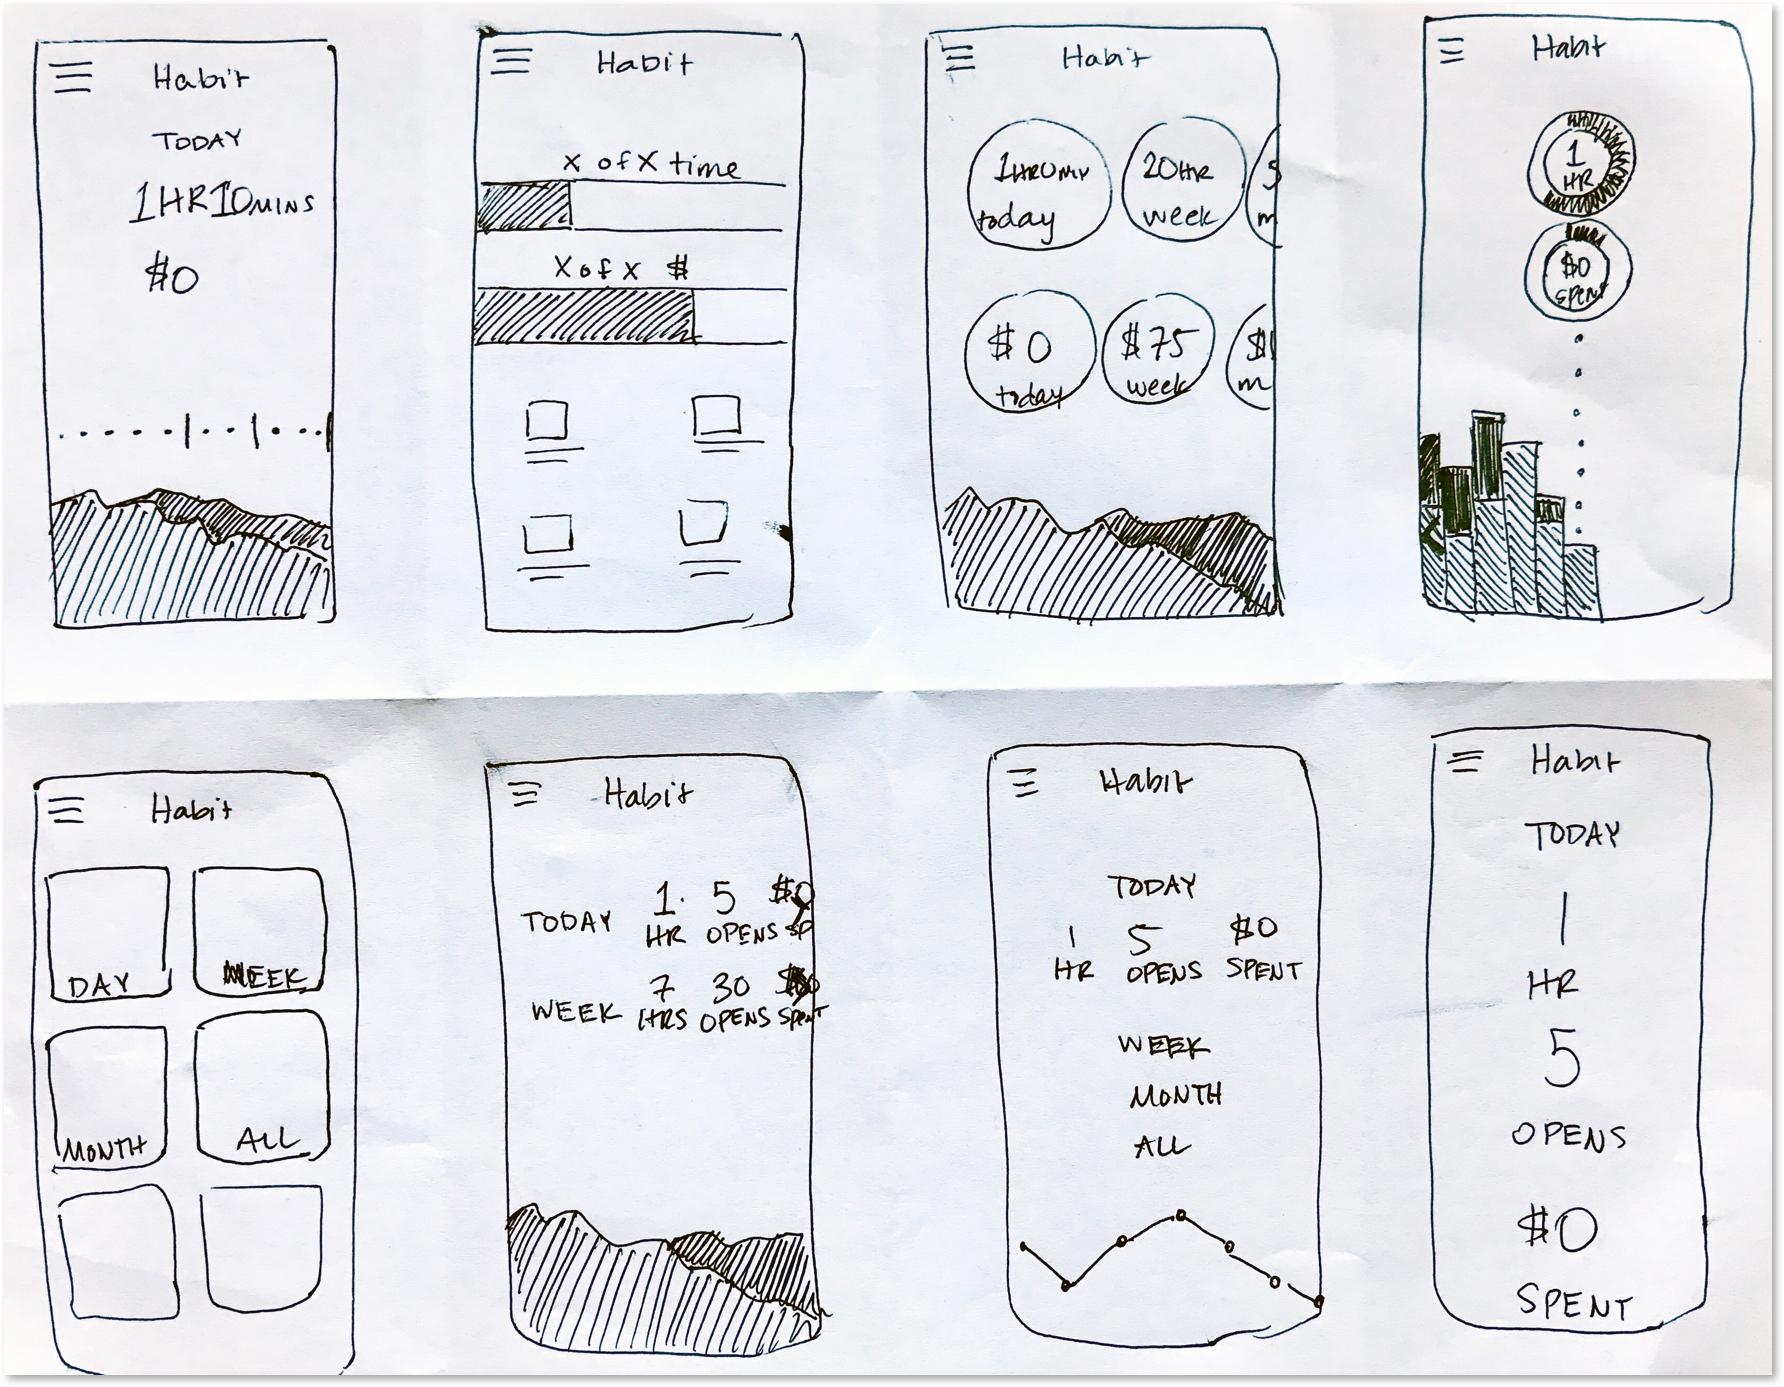 Habit
TODAY
1HR10MINS
$0
Habit
X of X time
X of X $
Habit
today
20HR
week
$0
today
$75
week
Habit
1
HR
$0
spent
Habit
DAY
WEEK
MONTH
ALL
Habit
TODAY
1 5 $0
HR OPENS SP
WEEK
7 30
HRS OPENS Spent
Habit
TODAY
1 5 $0
HR OPENS SPENT
WEEK
MONTH
ALL
Habit
TODAY
1
HR
5
OPENS
$0
SPENT